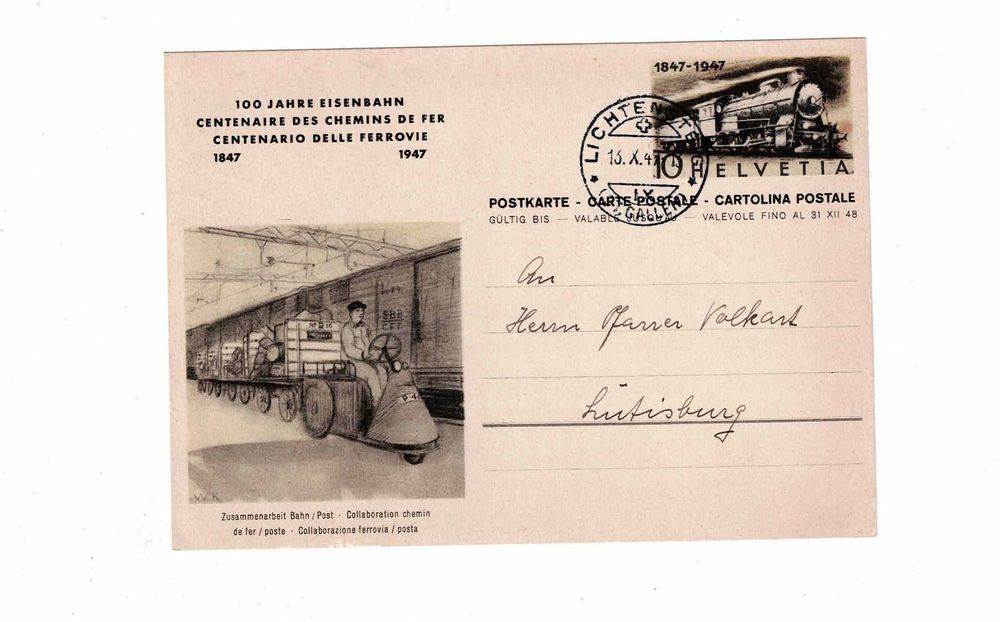 100 JAHRE EISENBAHN
CENTENAIRE DES CHEMINS DE FER
CENTENARIO DELLE FERROVIE
1847 1947
1847-1947
LICHTENSTEIG
13.X.47
(ST. GALLEN)
10 HELVETIA
POSTKARTE - CARTE POSTALE - CARTOLINA POSTALE
GÜLTIG BIS — VALABLE JUSQU'AU — VALEVOLE FINO AL 31 XII 48
An
Herrn Pfarrer Volkart
Lütisburg
SBB
CFF
WK
Zusammenarbeit Bahn / Post - Collaboration chemin
de fer / poste - Collaborazione ferrovia / posta